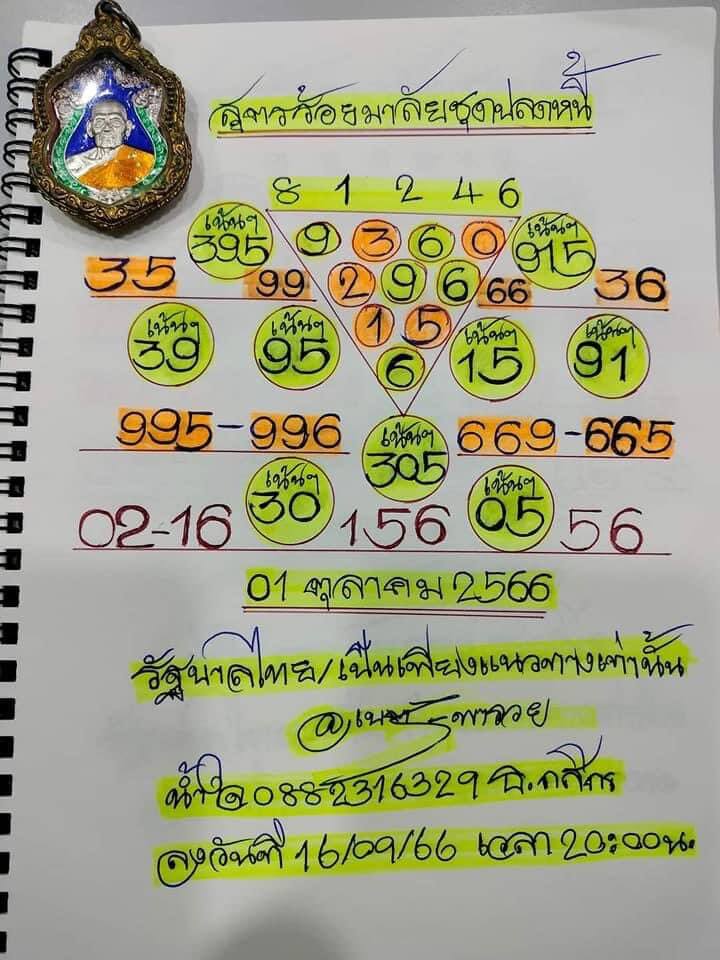 สูตรร้อยมาลัยชุดปลดหนี้
8 1 2 4 6
เน้นๆ 395 9 3 6 0 เน้นๆ 915
35 99 2 9 6 66 36
1 5
เน้นๆ 39 เน้นๆ 95 6 เน้นๆ 15 เน้นๆ 91
995-996 เน้นๆ 305 669-665
02-16 เน้นๆ 30 156 เน้นๆ 05 56
01 ตุลาคม 2566
รัฐบาลไทย/เป็นเพียงแนวทางเท่านั้น
พารวย
น้ำใจ 0882316329 ธ.กสิกร
ลงวันที่ 16/09/66 เวลา 20:00น.